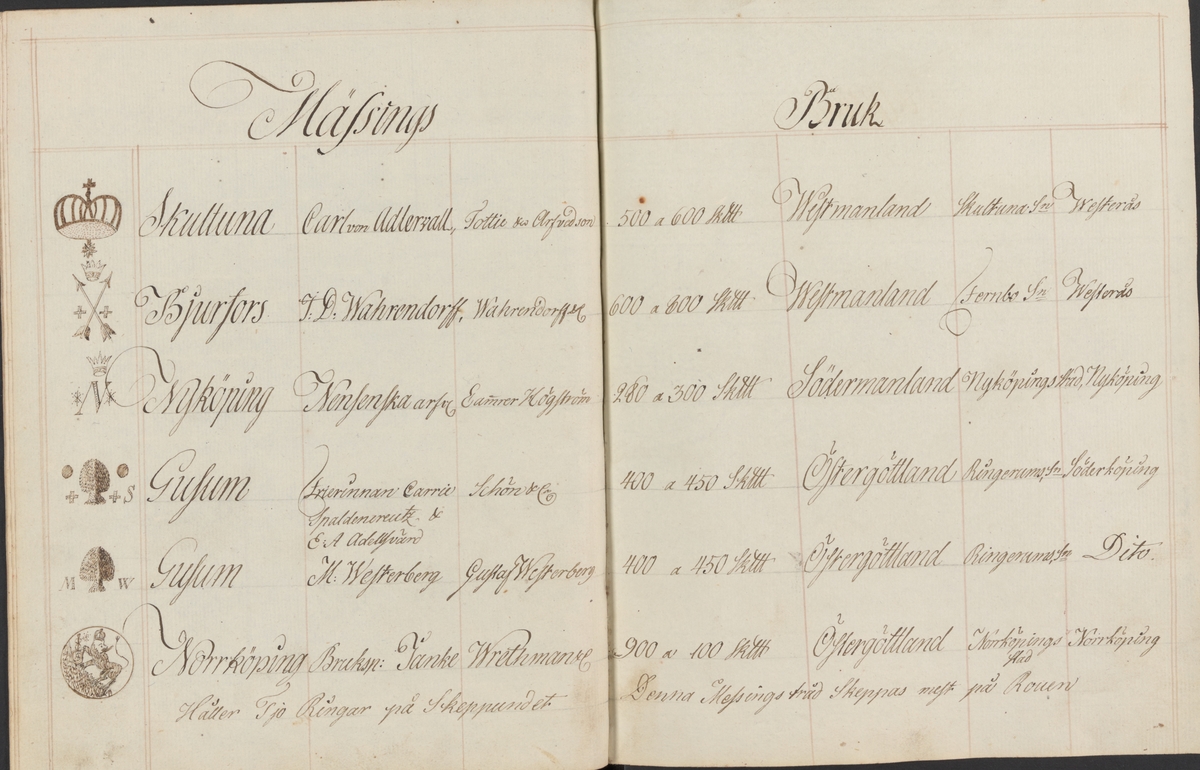 Mässings Bruk
Skultuna Carl von Adlervall, Tottie & Arfvedson 500 a 600 Sk℔ Westmanland Skultuna Sn Westerås
Bjurfors J. D. Wahrendorff, Wahrendorff &C 600 a 800 Sk℔ Westmanland Fernbo Sn Westerås
N
Nyköping Nensenska arf &C Camrer Högström 280 a 300 Sk℔ Södermanland Nyköpings Stad, Nyköping
S
Gusum Frierinnan Carrie Schön & Co 400 a 450 Sk℔ Östergöttland Ringerums Sn Söderköping
Spaldencreutz &
E A Adelsvärd
M W
Gusum H. Westerberg Gustaf Westerberg 400 a 450 Sk℔ Östergöttland Ringerums Sn Dito.
Norrköping Bruksp: Janke Wrethman &C 900 a 100 Sk℔ Östergöttland Norrköpings Norrköping
stad
Håller Tjo Ringar på Skeppundet Denna Messingstråd Skeppas mest på Rouen